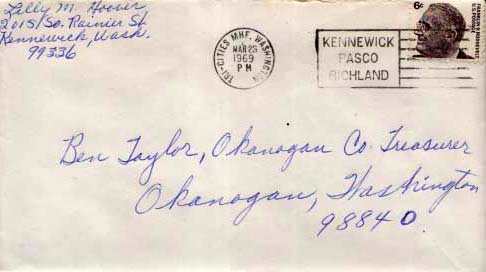 Lilly M. Hoover,
2015/So. Rainier St.
Kennewick, Wash.
99336
TRI-CITIES MHF, WASHINGTON
MAR 23
1969
PM
KENNEWICK
PASCO
RICHLAND
6c
FRANKLIN D. ROOSEVELT
U.S. POSTAGE
Ben Taylor, Okanogan Co. Treasurer
Okanogan, Washington
98840